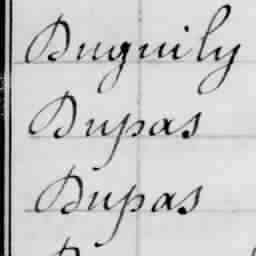 Duguily
Dupas
Dupas